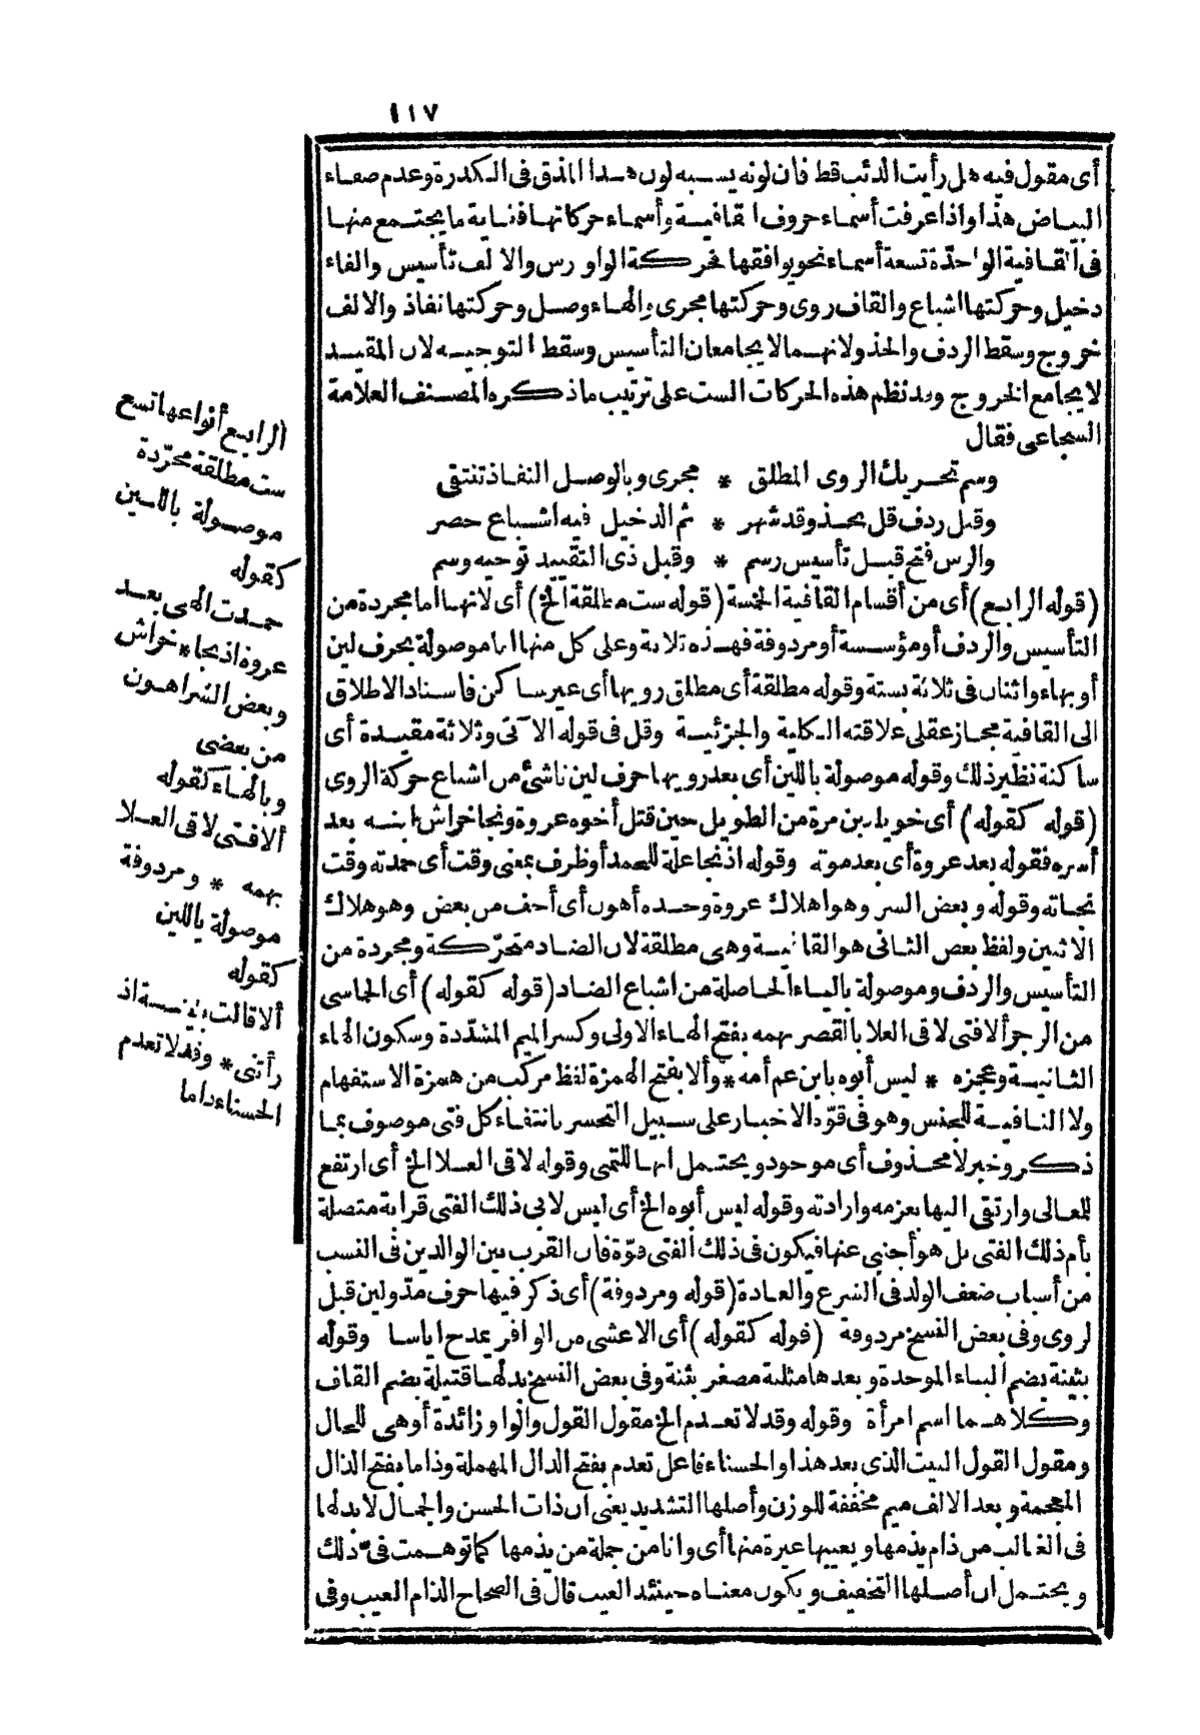 ١١٧
أى مقول فيه هل رأيت الذئب قط فان لونه يشبه لون هذا المذق فى الكدرة وعدم صفاء
البياض هذا واذا عرفت أسماء حروف القافية وأسماء حركاتها فنهاية ما يجتمع منها
فى القافية الواحدة تسعة أسماء نحو يوافقها فحركة الواو رس والالف تأسيس والفاء
دخيل وحركتها اشباع والقاف روى وحركتها مجرى والهاء وصل وحركتها نفاذ والالف
خروج وسقط الردف والحذو لانهما لا يجامعان التأسيس وسقط التوجيه لان المقيد
لا يجامع الخروج وقد نظم هذه الحركات الست على ترتيب ما ذكره المصنف العلامة
السجاعى فقال
وسم تحريك الروى المطلق * مجرى وبالوصل النفاذ تنتقى
وقبل ردف قل بحذو قد شهر * ثم الدخيل فيه اشباع حصر
والرس فتح قبل تأسيس رسم * وقبل ذى التقييد توجيه وسم
(قوله الرابع) أى من أقسام القافية الخمسة (قوله ست مطلقة الخ) أى لانها اما مجردة من
التأسيس والردف أو مؤسسة أو مردوفة فهذه ثلاثة وعلى كل منها اما موصولة بحرف لين
أو بهاء واثنان فى ثلاثة بستة وقوله مطلقة أى مطلق رويها أى غير ساكن فاسناد الاطلاق
الى القافية مجاز عقلى علاقته الكلية والجزئية وقل فى قوله الآتى وثلاثة مقيدة أى
ساكنة نظير ذلك وقوله موصولة باللين أى بعد رويها حرف لين ناشئ من اشباع حركة الروى
(قوله كقوله) أى خويلد بن مرة من الطويل حين قتل أخوه عروة ونجا خراش ابنه بعد
أسره فقوله بعد عروة أى بعد موته وقوله اذ نجا علة للحمد أو ظرف بمعنى وقت أى حمدته وقت
نجاته وقوله وبعض الشر وهو اهلاك عروة وحده أهون أى أخف من بعض وهو هلاك
الاثنين ولفظ بعض الثانى هو القافية وهى مطلقة لان الضاد متحركة ومجردة من
التأسيس والردف وموصولة بالياء الحاصلة من اشباع الضاد (قوله كقوله) أى الحماسى
من الرجز ألا فتى لاقى العلا بالقصر بهمه بفتح الهاء الاولى وكسر الميم المشددة وسكون الهاء
الثانية وعجزه * ليس أبوه بابن عم أمه * وألا بفتح الهمزة لفظ مركب من همزة الاستفهام
ولا النافية للجنس وهو فى قوة الاخبار على سبيل التحسر بانتفاء كل فتى موصوف بما
ذكر وخبر لا محذوف أى موجود ويحتمل انها للتمنى وقوله لاقى العلا الخ أى ارتفع
للمعالى وارتقى اليها بعزمه وارادته وقوله ليس أبوه الخ أى ليس لابى ذلك الفتى قرابة متصلة
بأم ذلك الفتى بل هو أجنبى عنها فيكون فى ذلك الفتى قوة فان القرب بين الوالدين فى النسب
من أسباب ضعف الولد فى الشرع والعادة (قوله ومردوفة) أى ذكر فيها حرف مد ولين قبل
لروى وفى بعض النسخ مردوفة (قوله كقوله) أى الاعشى من الوافر يمدح اياسا وقوله
بثينة بضم الباء الموحدة وبعدها مثلثة مصغر بثنة وفى بعض النسخ بدلها قتيلة بضم القاف
وكلاهما اسم امرأة وقوله وقد لا تعدم الخ مقول القول والواو زائدة أو هى للحال
ومقول القول البيت الذى بعد هذا والحسناء فاعل تعدم بفتح الدال المهملة وذاما بفتح الذال
المعجمة وبعد الالف ميم مخففة للوزن وأصلها التشديد يعنى ان ذات الحسن والجمال لا بد لها
فى الغالب من ذام يذمها ويعيبها غيرة منها أى وانا من جملة من يذمها كما توهمت فى ذلك
ويحتمل ان أصلها التخفيف ويكون معناه حينئذ العيب قال فى الصحاح الذام العيب وفى
(الرابع أنواعها تسع
ست مطلقة مجردة
موصولة باللين
كقوله
حمدت الهى بعد
عروة اذ نجا * خراش
وبعض الشر اهون
من بعض
وبالهاء كقوله
ألا فتى لاقى العلا
بهمه * ومردوفة
موصولة باللين
كقوله
ألا قالت بثينة اذ
رأتنى * وقد لا تعدم
الحسناء ذاما